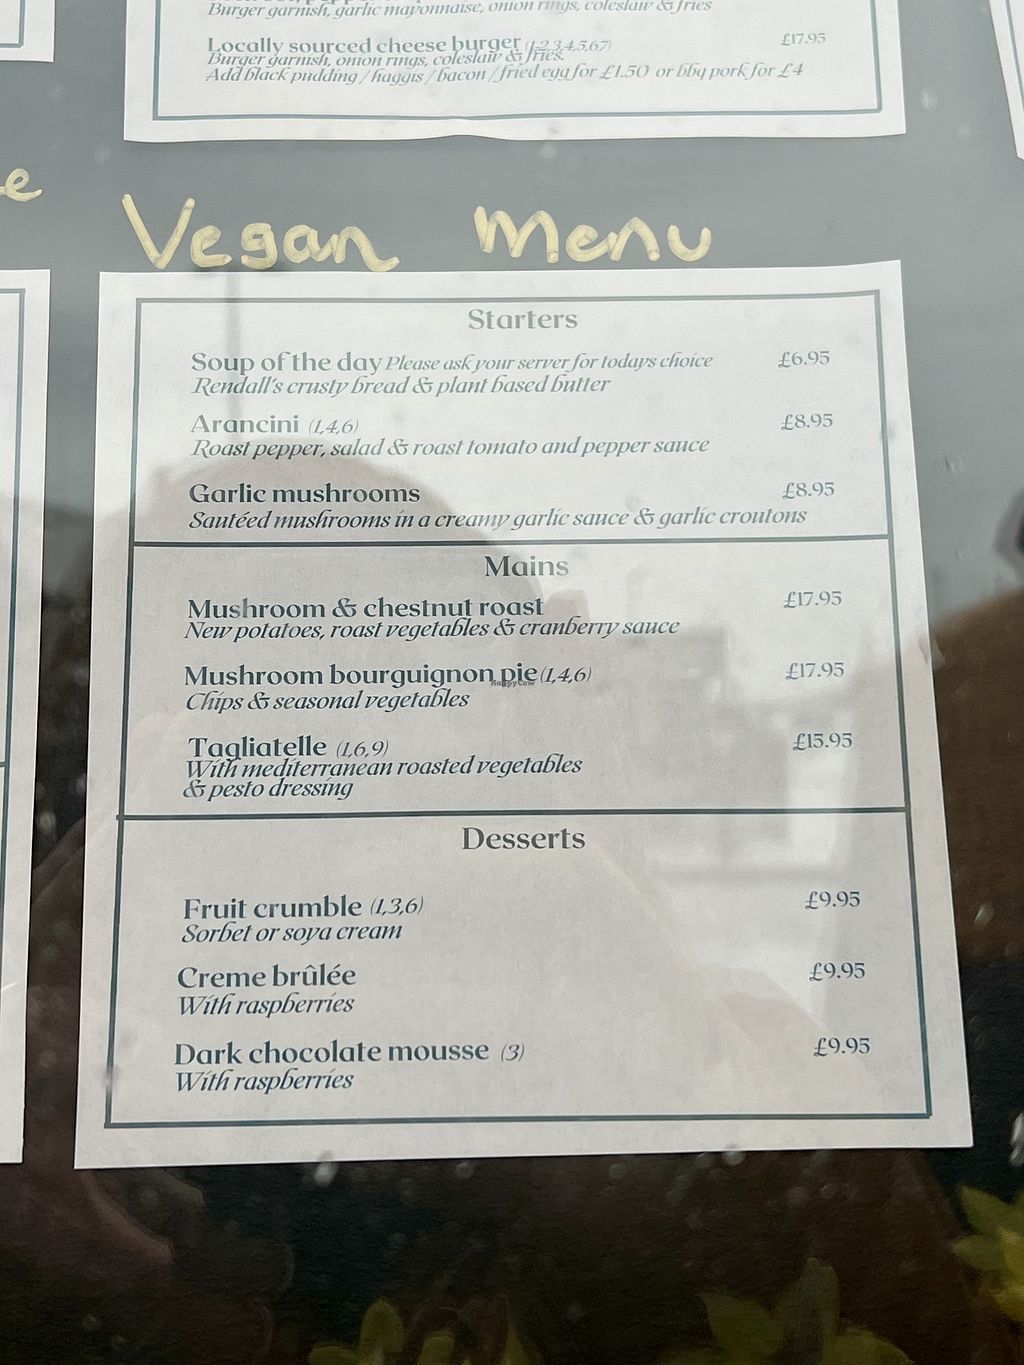 Burger garnish, garlic mayonnaise, onion rings, coleslaw & fries
Locally sourced cheese burger (1,2,3,4,5,6,7) £17.95
Burger garnish, onion rings, coleslaw & fries.
Add black pudding / haggis / bacon / fried egg for £1.50 or bbq pork for £4
e
Vegan Menu
Starters
Soup of the day Please ask your server for todays choice £6.95
Rendall's crusty bread & plant based butter
Arancini (1,4,6) £8.95
Roast pepper, salad & roast tomato and pepper sauce
Garlic mushrooms £8.95
Sautéed mushrooms in a creamy garlic sauce & garlic croutons
Mains
Mushroom & chestnut roast £17.95
New potatoes, roast vegetables & cranberry sauce
Mushroom bourguignon pie (1,4,6) £17.95
HappyCow
Chips & seasonal vegetables
Tagliatelle (1,6,9) £15.95
With mediterranean roasted vegetables
& pesto dressing
Desserts
Fruit crumble (1,3,6) £9.95
Sorbet or soya cream
Creme brûlée £9.95
With raspberries
Dark chocolate mousse (3) £9.95
With raspberries